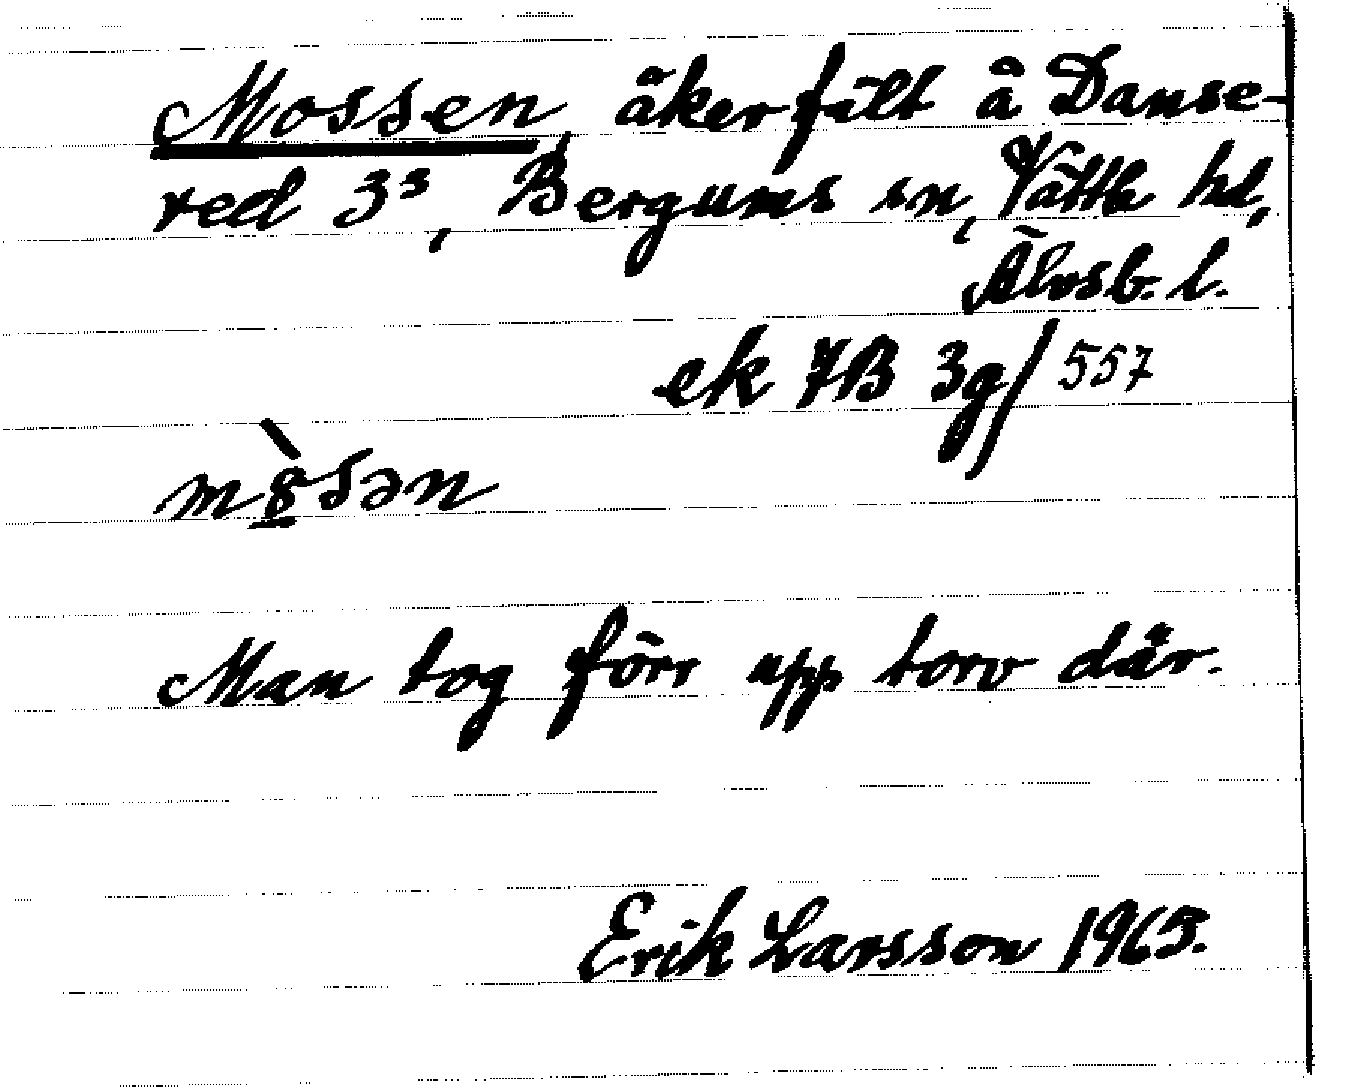 Mossen, åkerfält å Danse-
red 3³, Bergums sn, Vättle hd,
Älvsb. l.
ek 7B 3g/557
Man tog förr upp torv där.
Erik Larsson 1965.